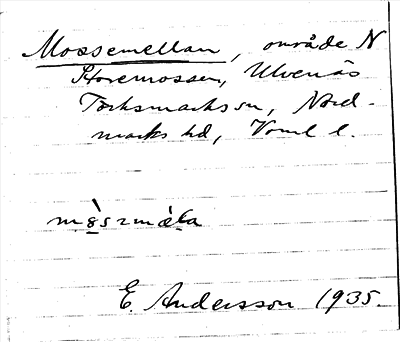 Mossemellan, område N
Storemossen, Ulvenäs
Torksmarks sn, Nord-
marks hd, Verml l.
E. Andersson 1935.